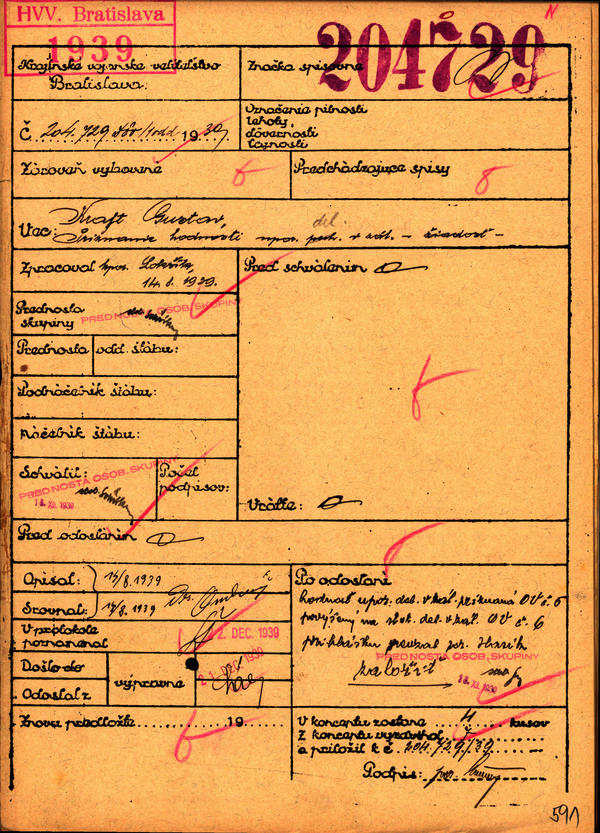 HVV. Bratislava
1939
N
204729
Krajinske vojenske veliteľstvo
Bratislava:
Značka spisovne
Č. 204.729 1939
Označenie pilnosti
lehoty,
dôvernosti
tajnosti
Zároveň vybavené
Predchádzajúce spisy
Vec: Kraft Gustav,
Priznanie hodnosti npor. del. v zál. – žiadosť –
Zpracoval npor.
14.8.1939.
Pred schválením
Prednosta
skupiny
PREDNOSTA OSOB. SKUPINY
Prednosta odd. štábu:
Podnáčelník štábu:
Náčelník štábu:
Schválil:
PREDNOSTA OSOB. SKUPINY
18. XII. 1939
Počet
podpisov:
Vráťte:
Pred odoslaním
Opísal: 14/8.1939
Srovnal: 14/8.1939
V protokole
poznamenal
2. DEC. 1939
Došlo do
Odoslal z
výpravne
21. DEC. 1939
Po odoslaní
hodnosť npor. del. v zál. priznaná OV č. 6
povýšený na stot. del. v zál. OV č. 6
prihlášku prevzal por.
PREDNOSTA OSOB. SKUPINY
založiť
18. XII. 1939
Znovu predložte 19
V konceptu zostane 4 kusov
Z konceptu vyzdvihol
a priložil k č. 204.729/39
Podpis: por.
591